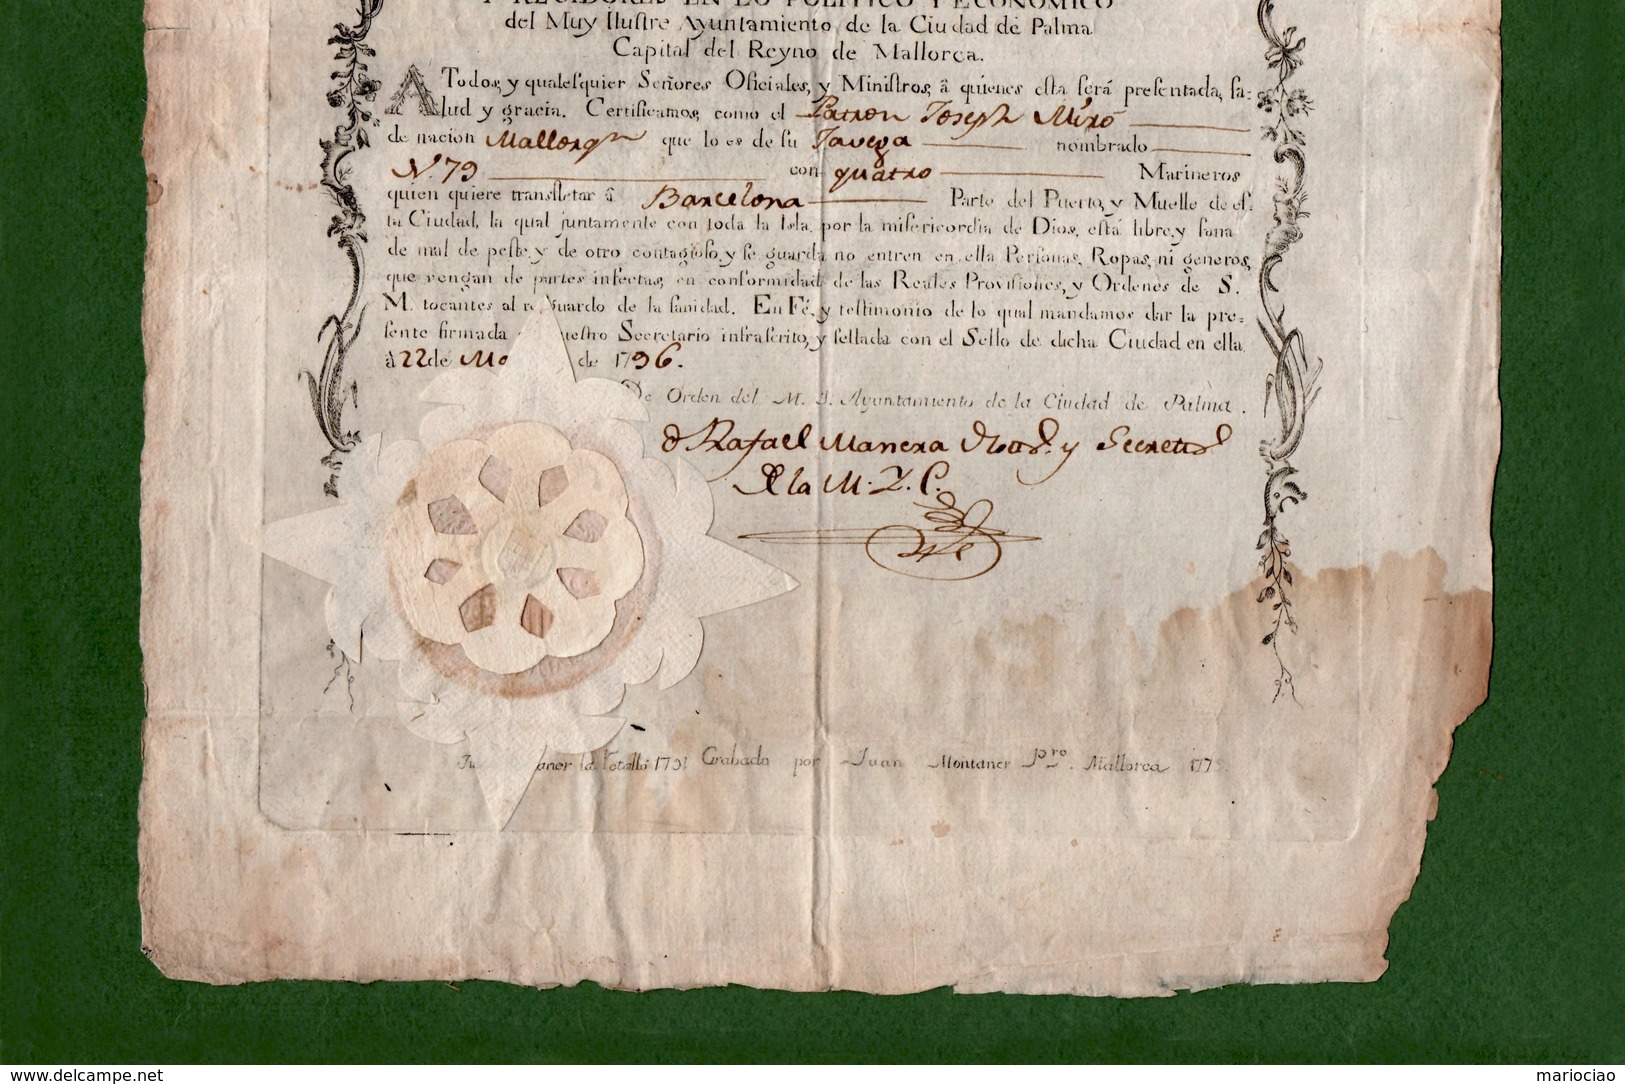 Y REGIDORES EN LO POLITICO Y ECONOMICO
del Muy Iluſtre Ayuntamiento, de la Ciudad de Palma
Capital del Reyno de Mallorca.
A Todos, y qualeſquier Señores Oficiales, y Miniſtros, â quienes eſta ſerá preſentada, ſa-
lud y gracia. Certificamos, como el Patron Joseph Miró
de nacion Mallorqn que lo es de ſu Javega nombrado
N.º 79 con quatro Marineros
quien quiere transfretar â Barcelona Parte del Puerto, y Muelle de eſ-
ta Ciudad, la qual juntamente con toda la Isla, por la miſericordia de Dios, eſtá libre, y ſana
de mal de peſte, y de otro contagioſo, y ſe guarda no entren en ella Perſonas, Ropas, ni generos,
que vengan de partes infectas, en conformidad de las Reales Proviſiones, y Ordenes de S.
M. tocantes al reſguardo de la ſanidad. En Fé, y teſtimonio de lo qual mandamos dar la pre-
ſente firmada ueſtro Secretario infraſcrito, y ſellada con el Sello de dicha Ciudad en ella
â 22 de Ma de 1796.
De Orden del M. I. Ayuntamiento de la Ciudad de Palma.
Dn Rafael Manera Nots. y Secrets
de la M. I. C.
aner la Retalló 1791 Grabado por Juan Montaner Pro. Mallorca
www.delcampe.net
mariociao